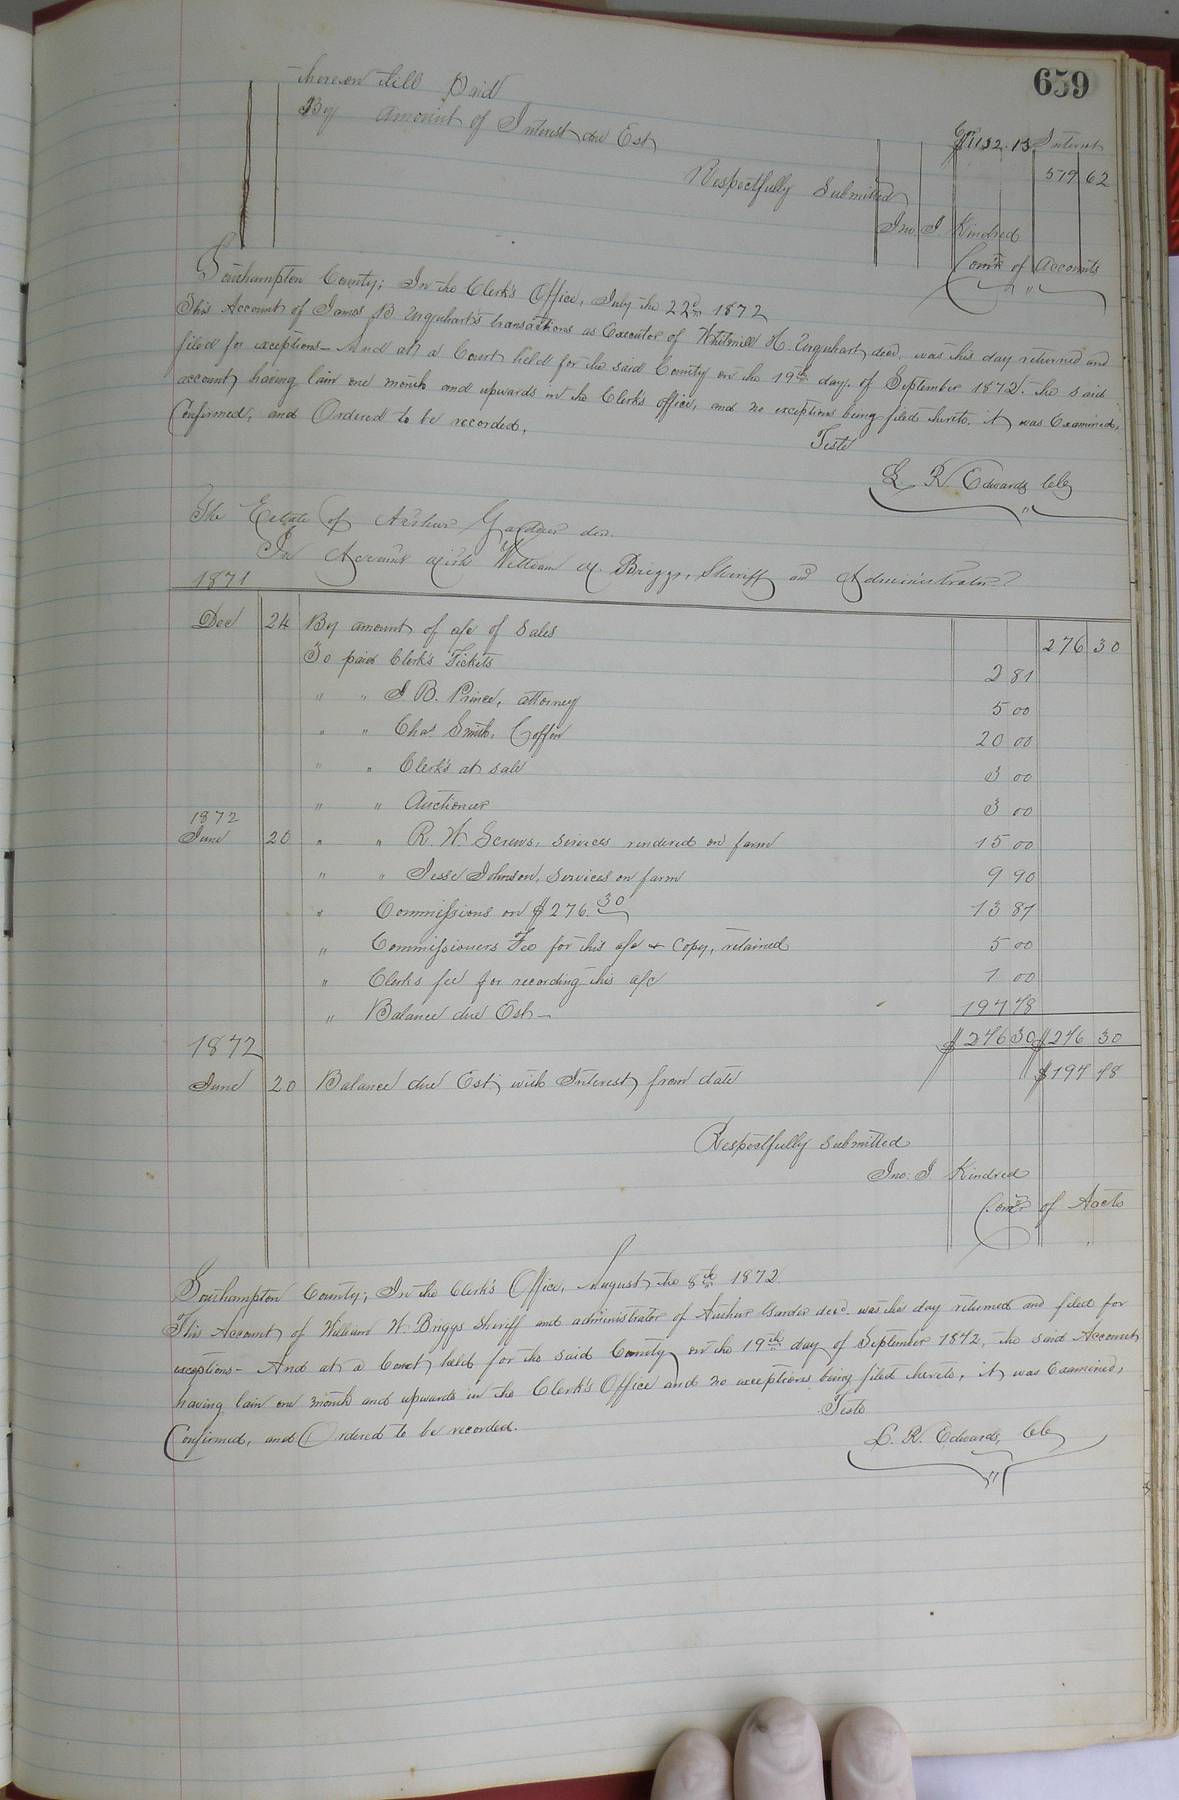 659
thereon till Paid
$1132.13 Interest
By amount of Interest due Est 579 62
Respectfully Submitted
Jno. J. Kindred
Com'r of Accounts
Southampton County; In the Clerk's Office, July the 22d 1872
This Account of James B. Urquhart's transactions as Executor of Whitmill H. Urquhart, decd. was this day returned and
filed for exceptions - And at a Court held for the said County on the 19th day of September 1872. the said
account having lain one month and upwards in the Clerk's office, and no exceptions being filed thereto, it was Examined,
Confirmed, and Ordered to be recorded.
Teste
L. R. Edwards Clk
The Estate of Arthur Gardner dec.
In Account with William W. Briggs, Sheriff and Administrator
1871
Dec 24 By amount of a/c of Sales 276 30
To paid Clerk's Tickets 2 81
" " J. B. Prince, attorney 5 00
" " Chas Smith, Coffin 20 00
" " Clerk's at sale 3 00
" " Auctioneer 3 00
1872
June 20 " " R. W. Screws, services rendered on farm 15 00
" " Jesse Johnson, services on farm 9 90
" Commissions on $276.30 13 81
" Commissioners Fee for this a/c & copy, retained 5 00
" Clerks fee for recording this a/c 1 00
" Balance due Est - 197 78
$276 30 $276 30
1872
June 20 Balance due Est with Interest from date $197 78
Respectfully submitted
Jno. J. Kindred
Com'r of Aacts
Southampton County; In the Clerk's Office, August the 8th 1872
This Account of William W. Briggs Sheriff and administrator of Arthur Garder decd. was this day returned and filed for
exceptions - And at a Court held for the said County on the 19th day of September 1872, the said Account
having lain one month and upwards in the Clerk's Office and no exceptions being filed thereto, it was Examined,
Confirmed, and Ordered to be recorded.
Teste
L. R. Edwards, Clk